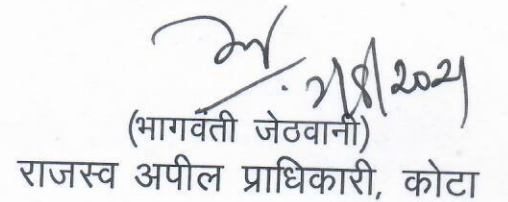 2/8/2021
(भागवंती जेठवानी)
राजस्व अपील प्राधिकारी, कोटा